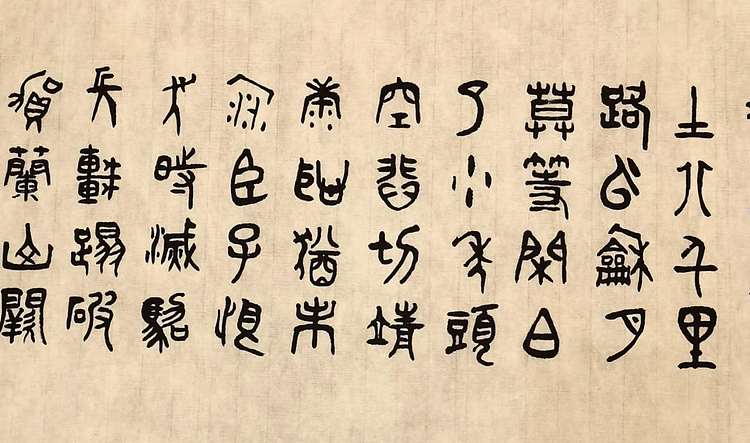 土八千里
路云龢月
莫等閑白
了少年頭
空悲切靖
康恥猶未
雪臣子恨
何時滅駕
長車踏破
賀蘭山闕